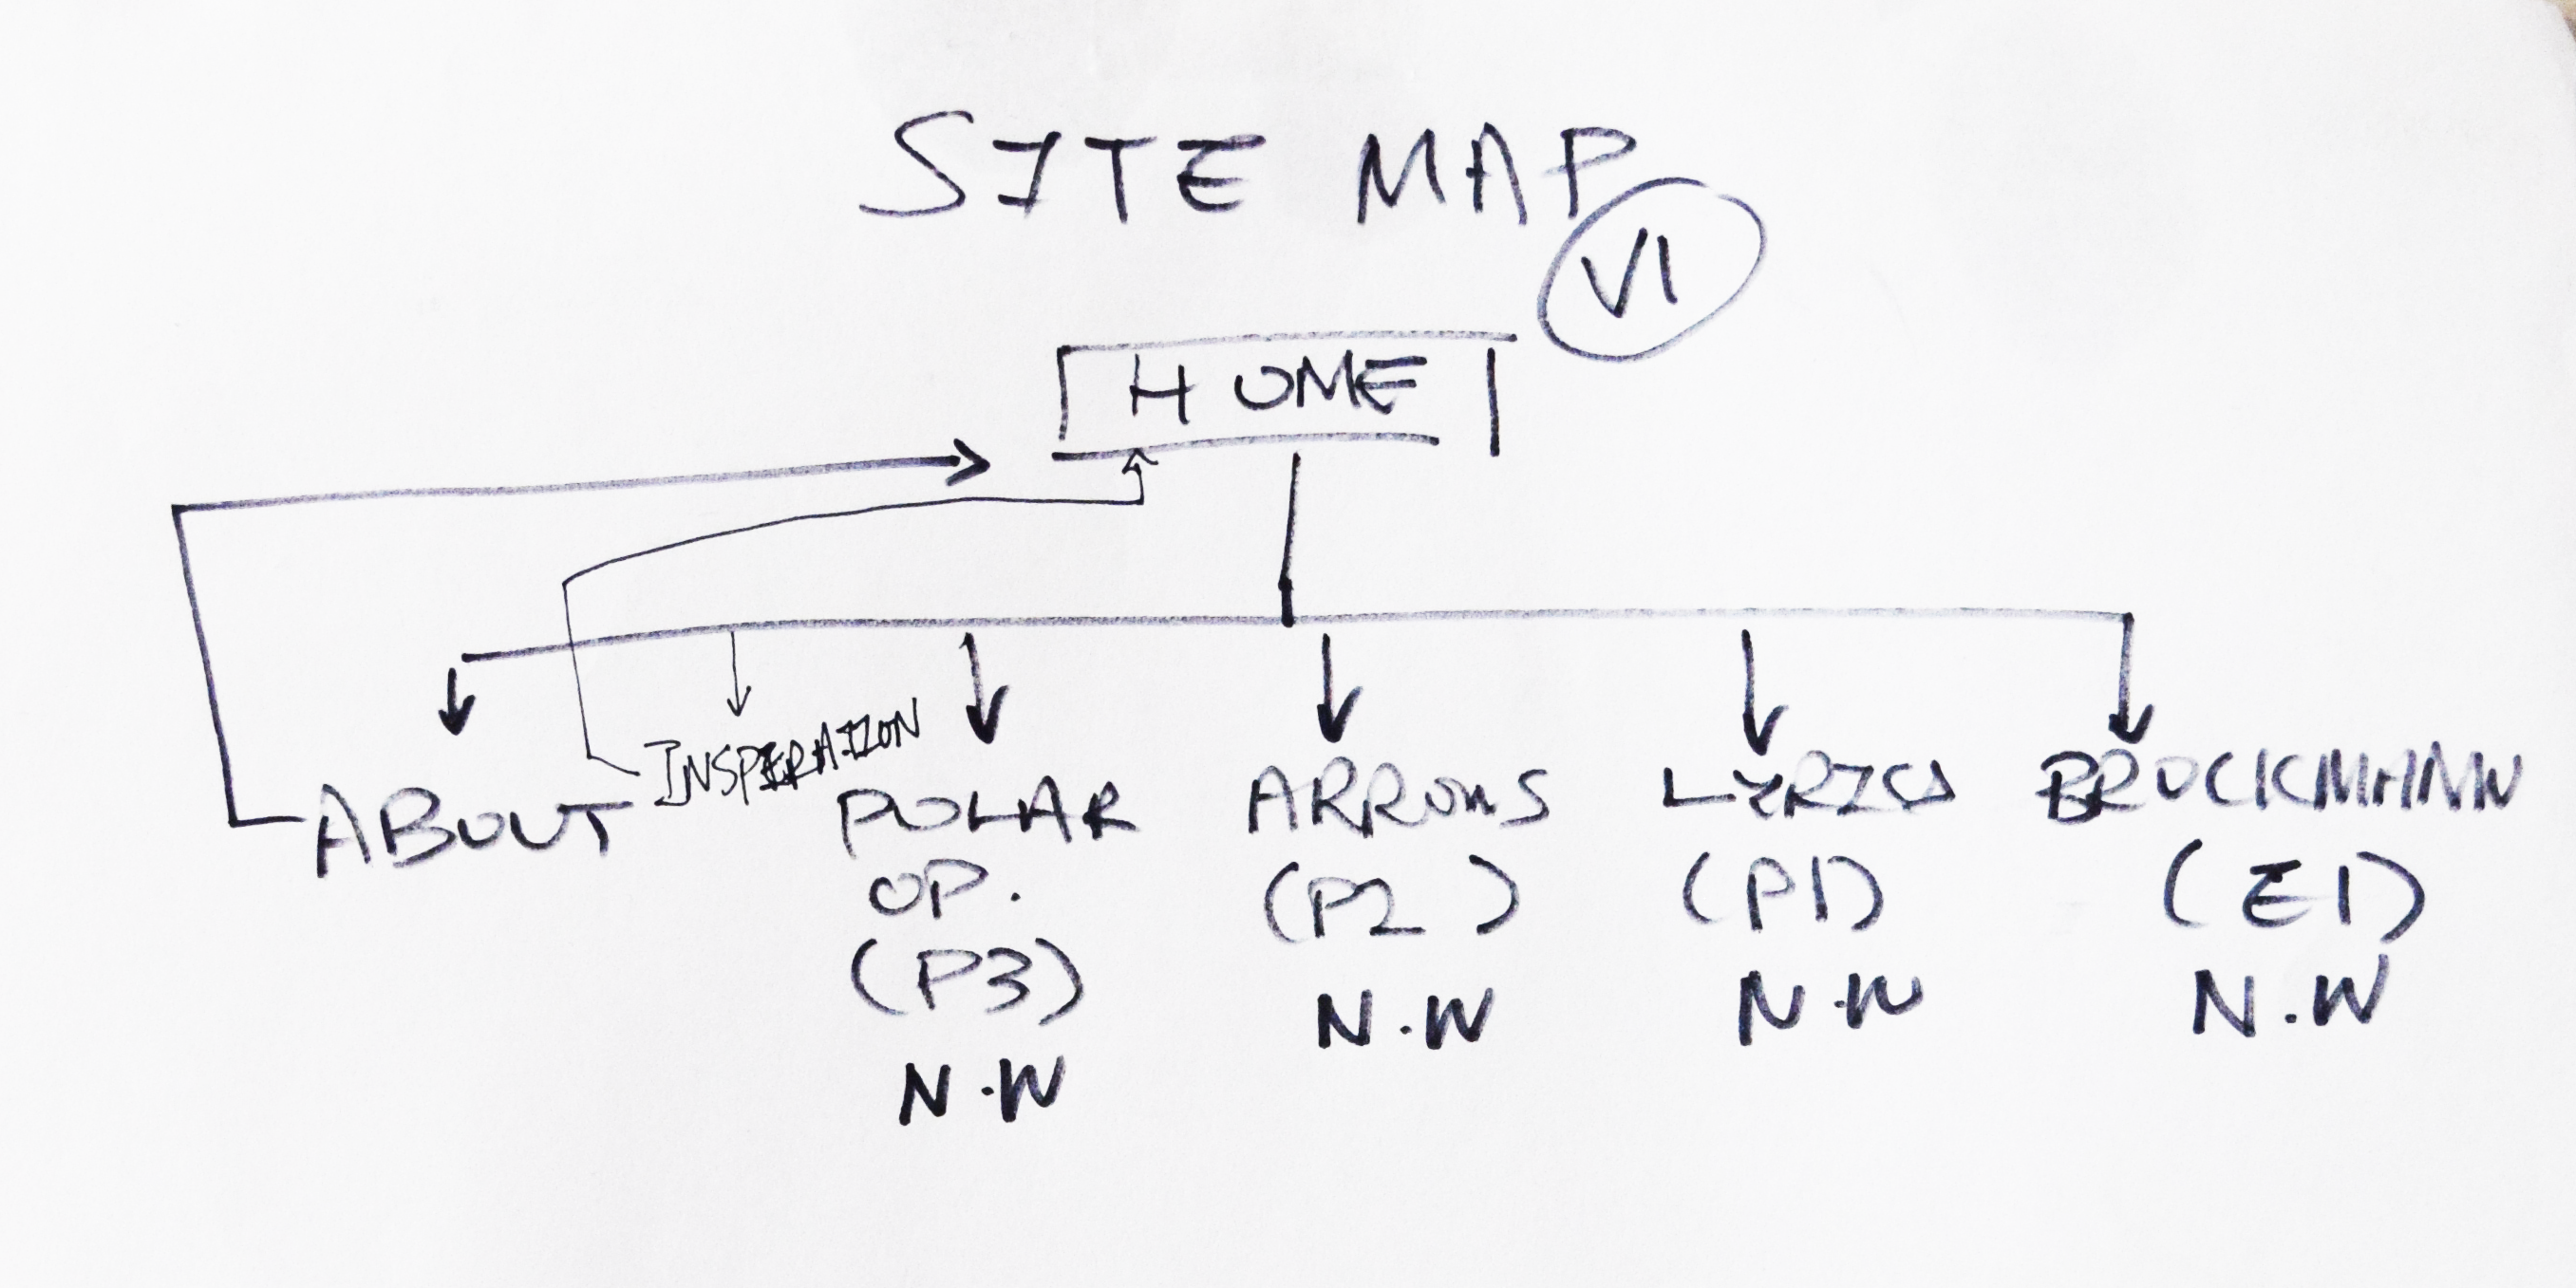 SITE MAP
V1
HOME
ABOUT
INSPERATION
POLAR
OP.
(P3)
N.W
ARROWS
(P2)
N.W
LYRICS
(P1)
N.W
BROCKMANN
(E1)
N.W